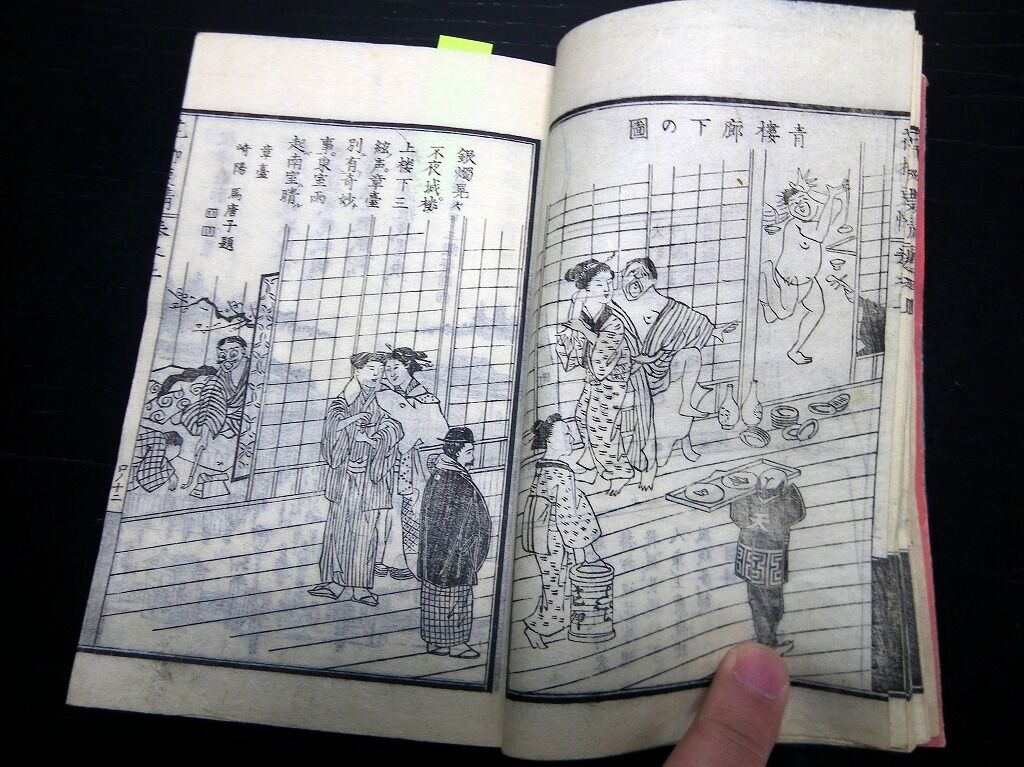 青樓廊下の圖
天
銀燭
不夜城樓
上楼下三
絃声。章臺
別有奇妙
事。東室雨
起。南室晴。
章臺
崎陽 馬唐子題
四ノ十二